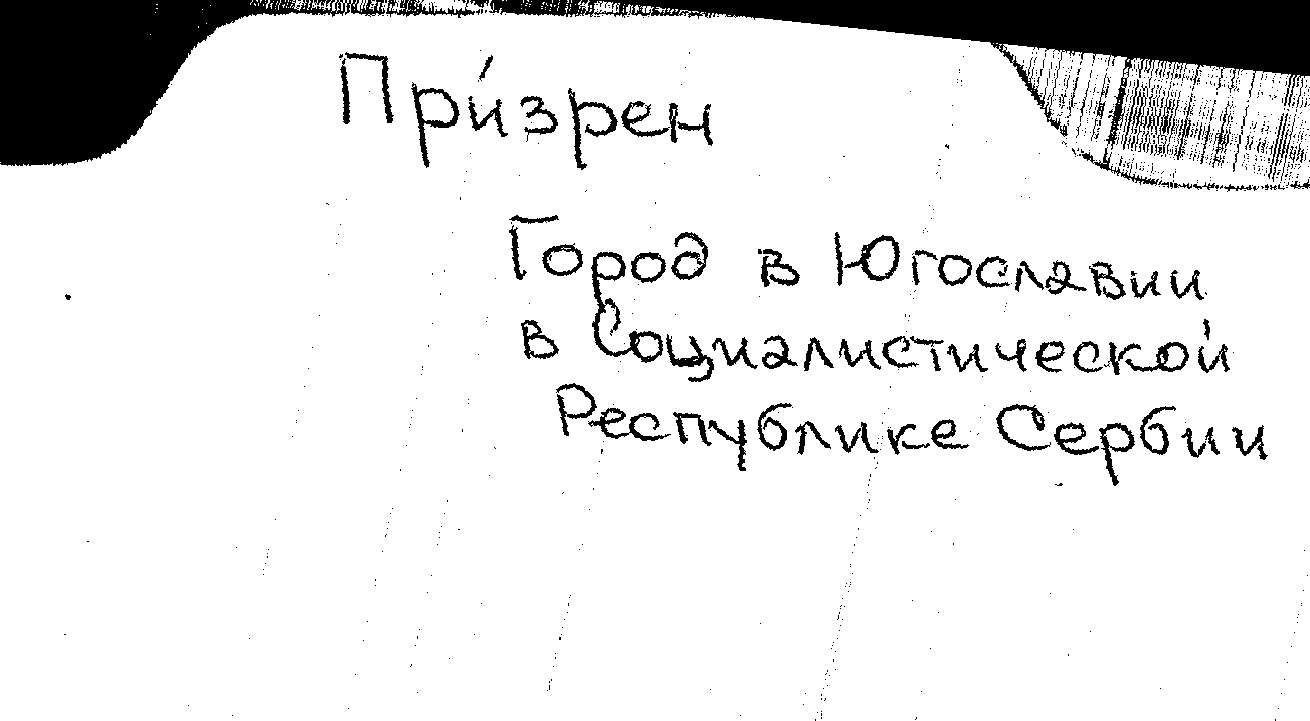 При́зрен
Город в Югославии
в Социалистической
Республике Сербии